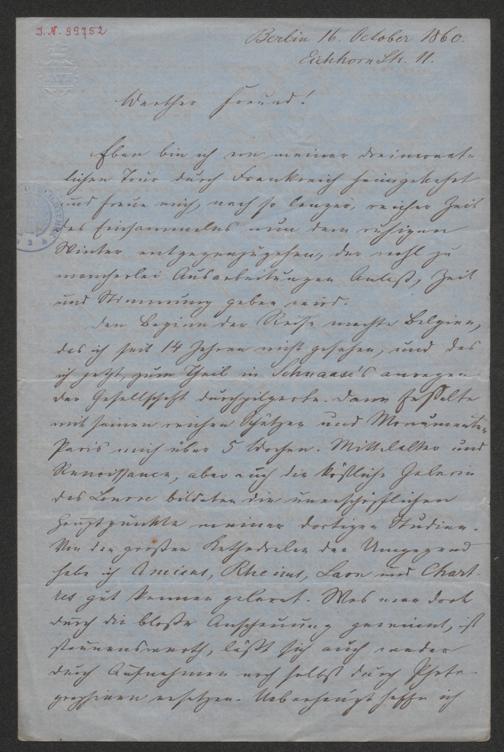 J.N. 99752
Berlin 16 October 1860.
Eichhorn Str. 11.
Werther Freund!
Eben bin ich von meiner dreimonat-
lichen Tour durch Frankreich heimgekehrt
und freue mich, nach so langer, reicher Zeit
des Einsammelns nun dem ruhigen
Winter entgegenzugehen, der wohl zu
mancherlei Ausarbeitungen Anlaß, Zeit
und Stimmung geben wird.
Den Beginn der Reise machte Belgien,
das ich seit 14 Jahren nicht gesehen, und das
ich jetzt zum Theil in Schnaase's anregen-
der Gesellschaft durchpilgerte. Dann fesselte
mit seinen reichen Schätzen und Monumenten
Paris mich über 5 Wochen. Mittelalter und
Renaissance, aber auch die köstliche Galerie
des Louvre bildeten die unerschöpflichen
Hauptpunkte meiner dortigen Studien.
Von den großen Kathedralen der Umgegend
habe ich Amiens, Rheims, Laon und Chart-
res gut kennen gelernt. Was man dort
durch die bloße Anschauung gewinnt, ist
staunenswerth, läßt sich auch weder
durch Aufnahmen noch selbst durch Photo-
graphieen ersetzen. Ueberhaupt hoffe ich